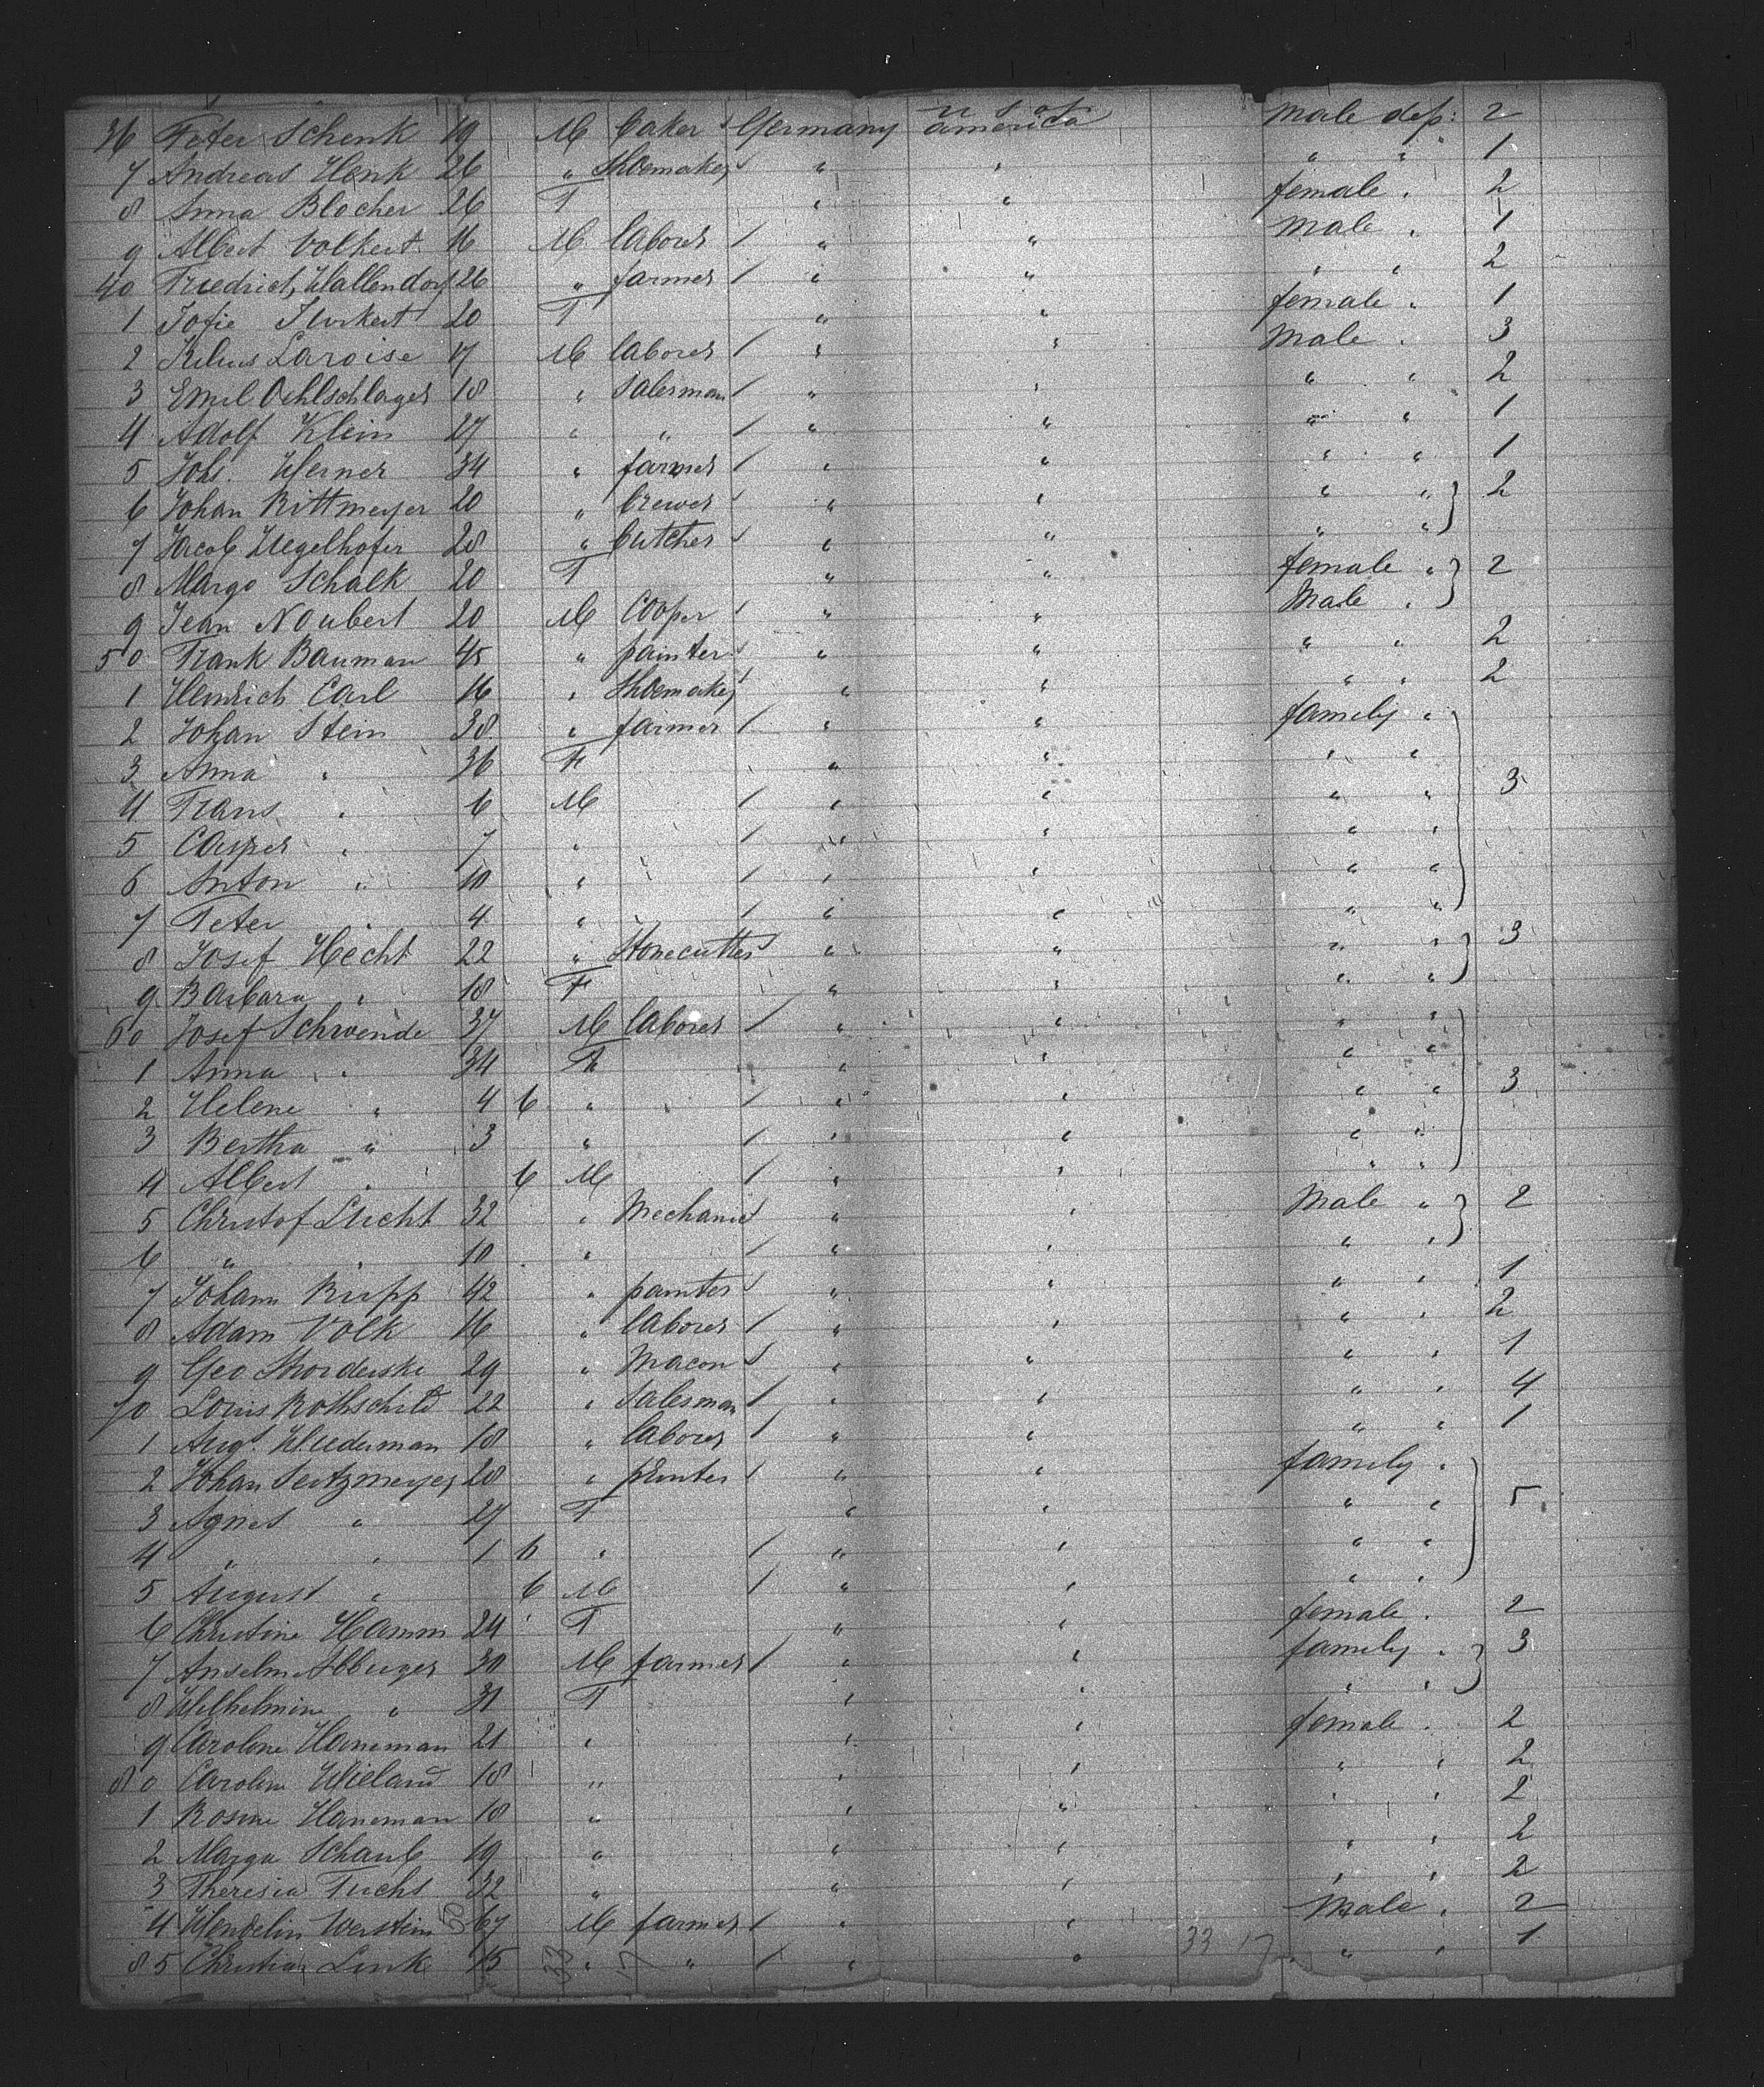 36 Peter Schenk 19 M baker / Germany U S of america male dep: 2
7 Andreas Henk 26 " Shoemaker / " " " " 1
8 Anna Blocher 26 F " " female " 2
9 Albert Volkert 16 M laborer / " " male " 1
40 Friedrich Wallendorf 26 " farmer / " " " " 2
1 Sofie 20 F " " female " 1
2 Julius Laroise 17 M laborer / " " Male " 3
3 Emil Oehlschlager 18 " Salesman / " " " " 2
4 Adolf Klein 27 " " / " " " " 1
5 Johs. Werner 34 " farmer / " " " " 1
6 Johan Rittmeyer 20 " brewer / " " " " } 2
7 Jacob 28 " butcher / " " " "
8 Marga Schalk 20 F " " female " } 2
9 Jean Noubert 20 M Cooper / " " Male "
50 Frank Bauman 45 " painter / " " " " 2
1 Heinrich Carl 16 " Shoemaker / " " " " 2
2 Johan Stein 38 " farmer / " " family "
3 Anna " 36 F " " " "
4 Frans " 6 M / " " " " } 3
5 Casper " 7 " / " " " "
6 Anton " 10 " / " " " "
7 Peter " 4 " / " " " "
8 Josef Hecht 22 " Stonecutter / " " " " } 3
9 Barbara " 18 F " " " "
60 Josef Schwende 37 M laborer / " " " "
1 Anna " 34 F " " " "
2 Helene " 4 6 " / " " " " } 3
3 Bertha " 3 " / " " " "
4 Albert " 6 M / " " " "
5 Christof Lucht 32 " Mechanic / " " Male " } 2
6 " " 10 " / " " " "
7 Johann Rupp 42 " painter / " " " " 1
8 Adam Volk 16 " laborer / " " " " 2
9 Geo 29 " Macon / " " " " 1
70 Louis Rothschild 22 " Salesman / " " " " 4
1 Augs. Wiederman 18 " laborer / " " " " 1
2 Johan Seitzmeyer 28 " printer / " " family "
3 Agnes " 27 F " " " " } 5
4 " " 1 6 " / " " " "
5 August " 6 M / " " " "
6 Christine Hamm 24 F " " female " 2
7 Anselm 30 M farmer / " " family " } 3
8 Wilhelmine " 31 F " " " "
9 Caroline Haneman 21 " " " female " 2
80 Caroline Wieland 18 " " " " " 2
1 Rosine Haneman 18 " " " " " 2
2 Marga Schaub 19 " " " " " 2
3 Theresia Fuchs 32 " " " " " 2
4 Wendelin 50 67 M farmer / " " Male " 2
85 Christian Link 15 33 " 17 " / " " 33 17 " " 1